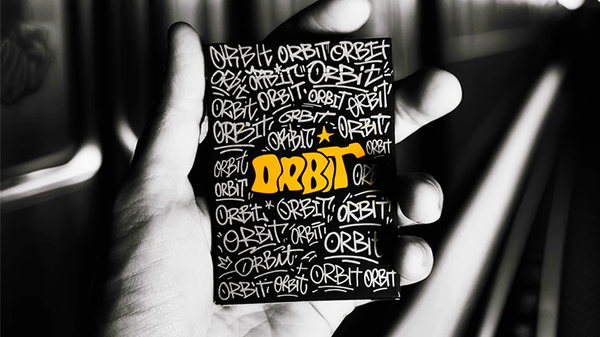 ORBIT ORBIT ORBIT
ORBIT ORBIT ORBIT
ORBIT ORBIT ORBIT ORBIT
ORBIT ORBIT ORBIT
ORBIT ORBIT
ORBIT ORBIT
ORBIT ORBIT
ORBIT ORBIT ORBIT
ORBIT ORBIT ORBIT
ORBIT
ORBIT ORBIT ORBIT ORBIT